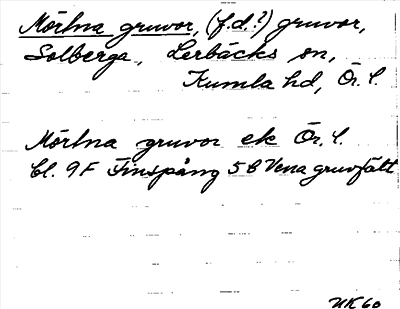 Mörtna gruvor, (f.d.?) gruvor,
Solberga, Lerbäcks sn,
Kumla hd, Ör. l.
Mörtna gruvor ek Ör. l.
bl. 9F Finspång 5 B Vena gruvfält
NK60